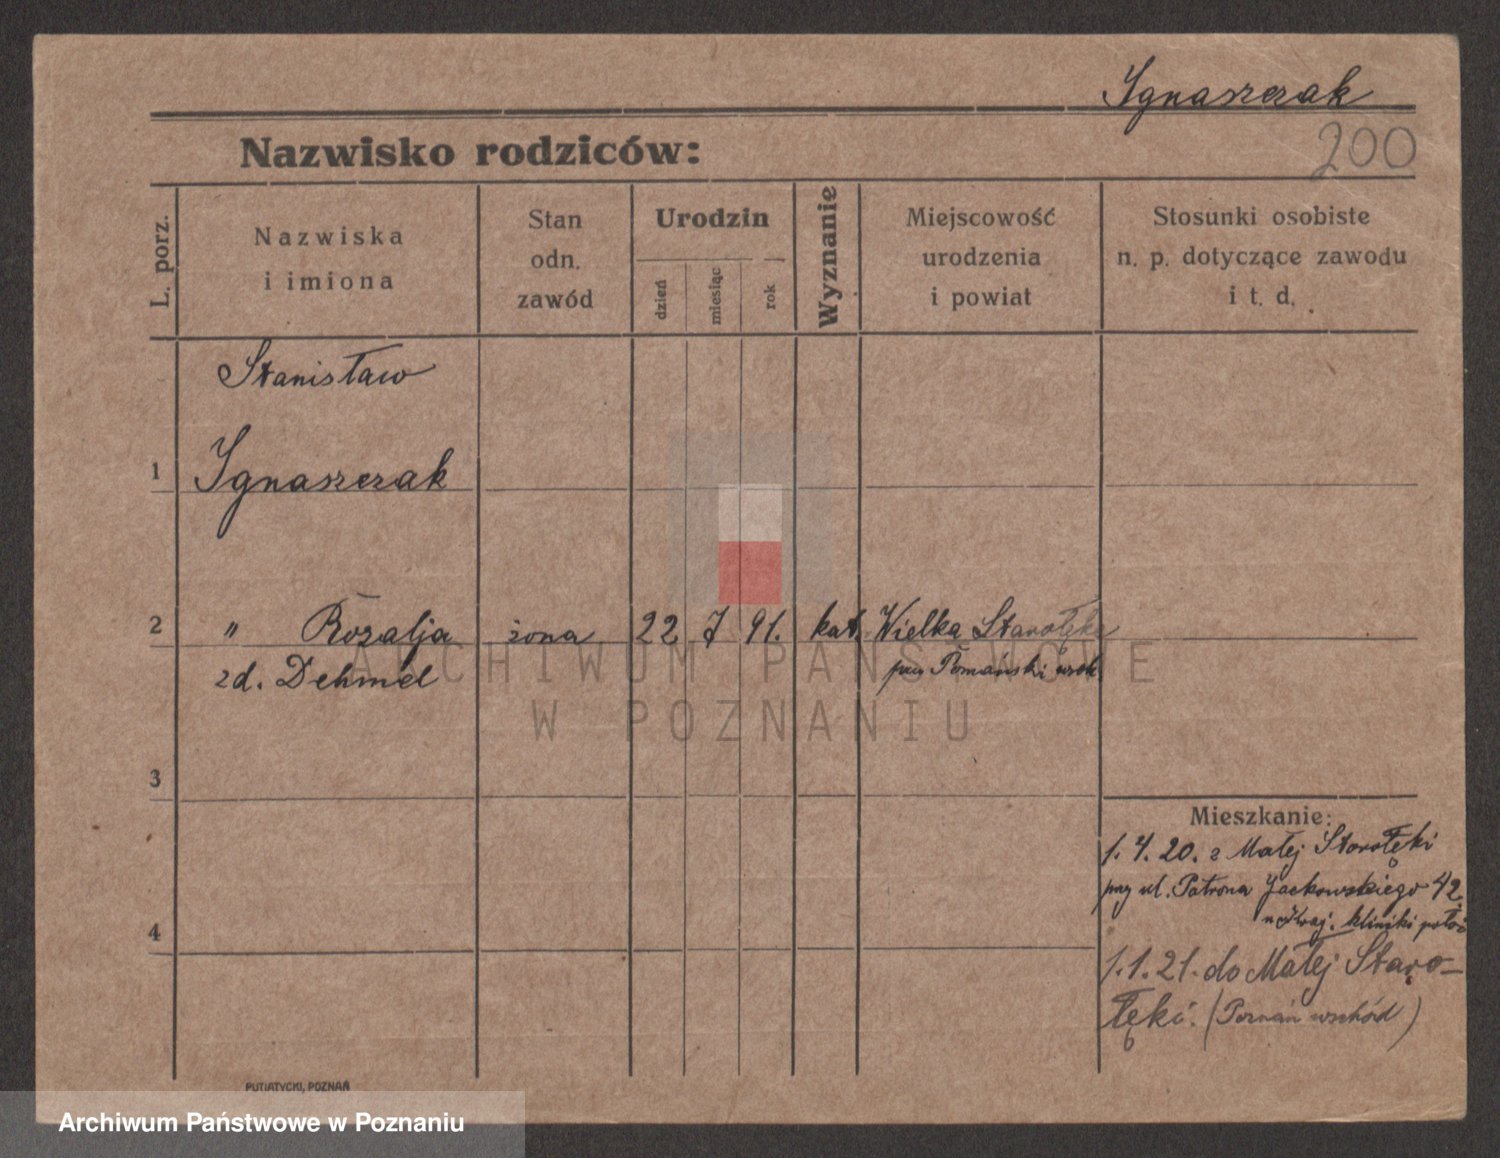 Ignaszczak
200
Nazwisko rodziców:
L. porz.
Nazwiska
i imiona
Stan
odn.
zawód
Urodzin
dzień
miesiąc
rok
Wyznanie
Miejscowość
urodzenia
i powiat
Stosunki osobiste
n. p. dotyczące zawodu
i t. d.
Stanisław
1
Ignaszczak
2
" Rozalja żona 22 7 91. kat. Wielka Starołęka
zd. Dehmel
pow. Poznański wsch.
ARCHIWUM PAŃSTWOWE
W POZNANIU
3
Mieszkanie:
1. 4. 20. z Małej Starołęki
przy ul. Patrona Jackowskiego 42
kliniki położ
4
1. 1. 21. do Małej Staro-
łęki. (Poznań wschód)
PUTIATYCKI, POZNAŃ
Archiwum Państwowe w Poznaniu